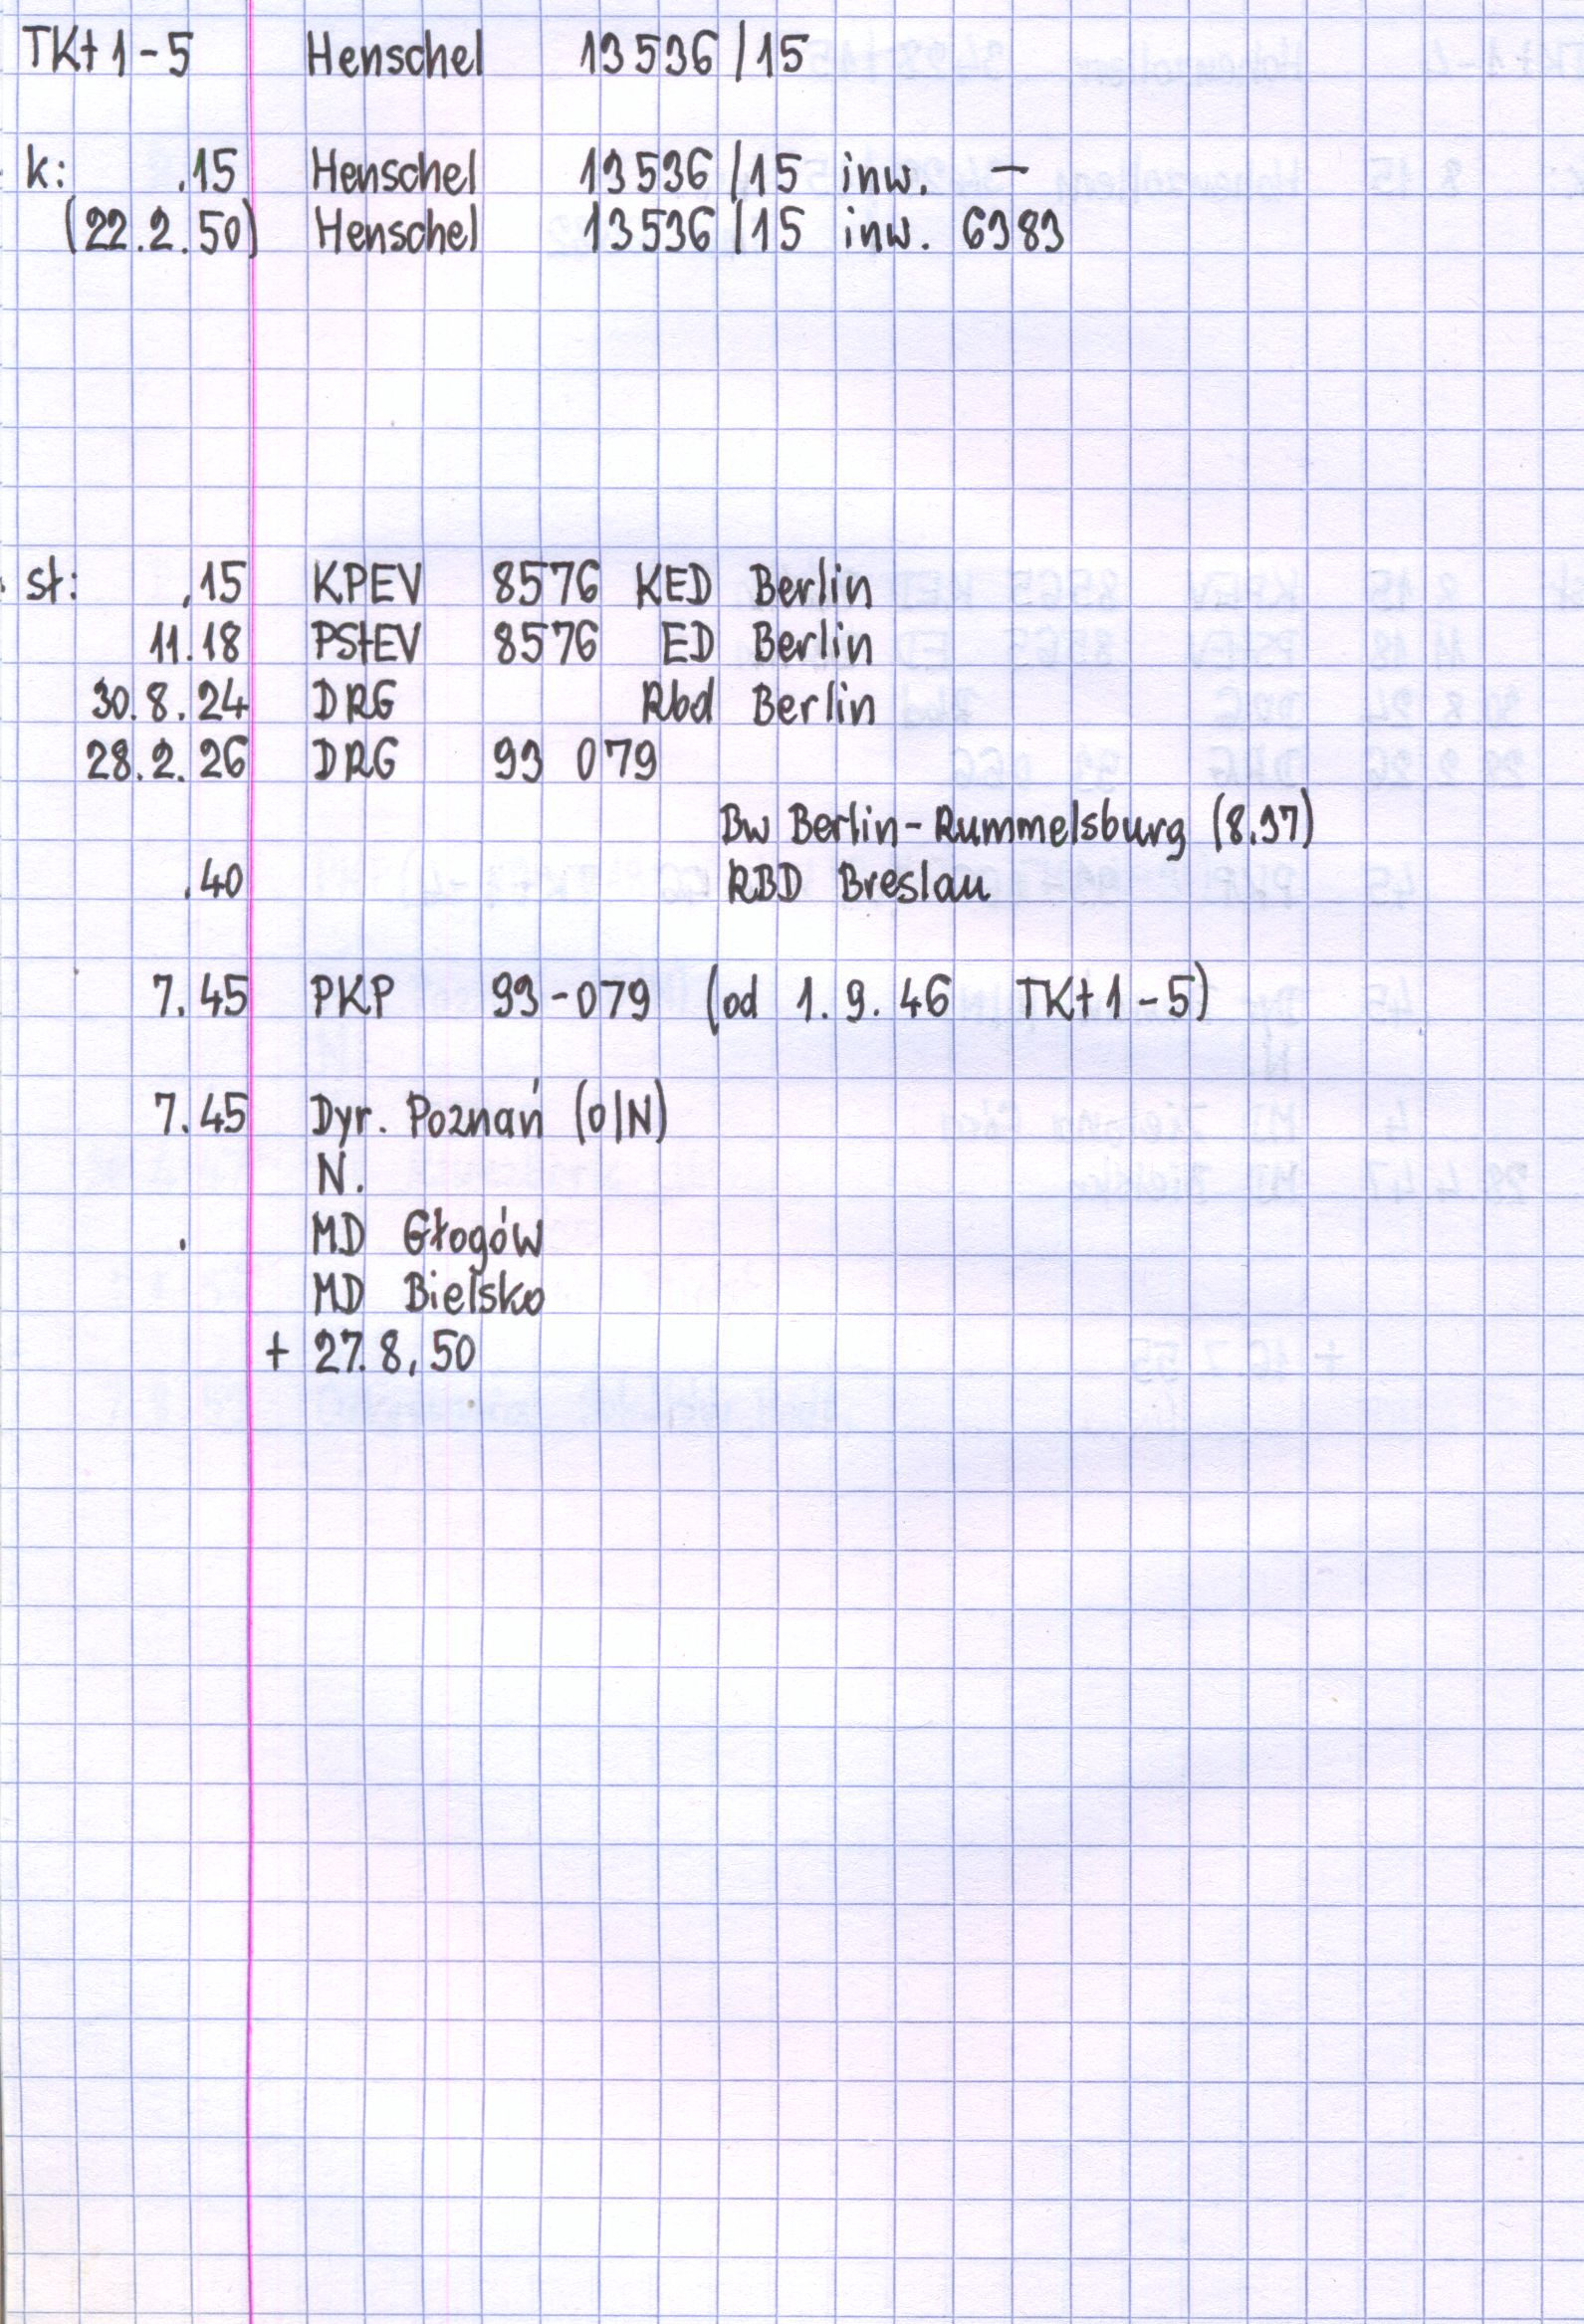 TKt 1-5 Henschel 13536/15
k: .15 Henschel 13536/15 inw. –
(22.2.50) Henschel 13536/15 inw. 6983
st: .15 KPEV 8576 KED Berlin
11.18 PStEV 8576 ED Berlin
30.8.24 DRG Rbd Berlin
28.2.26 DRG 93 079
Bw Berlin-Rummelsburg (8.37)
.40 RBD Breslau
7.45 PKP 93-079 (od 1.9.46 TKt 1-5)
7.45 Dyr. Poznań (o/N)
N.
. MD Głogów
MD Bielsko
+ 27.8.50